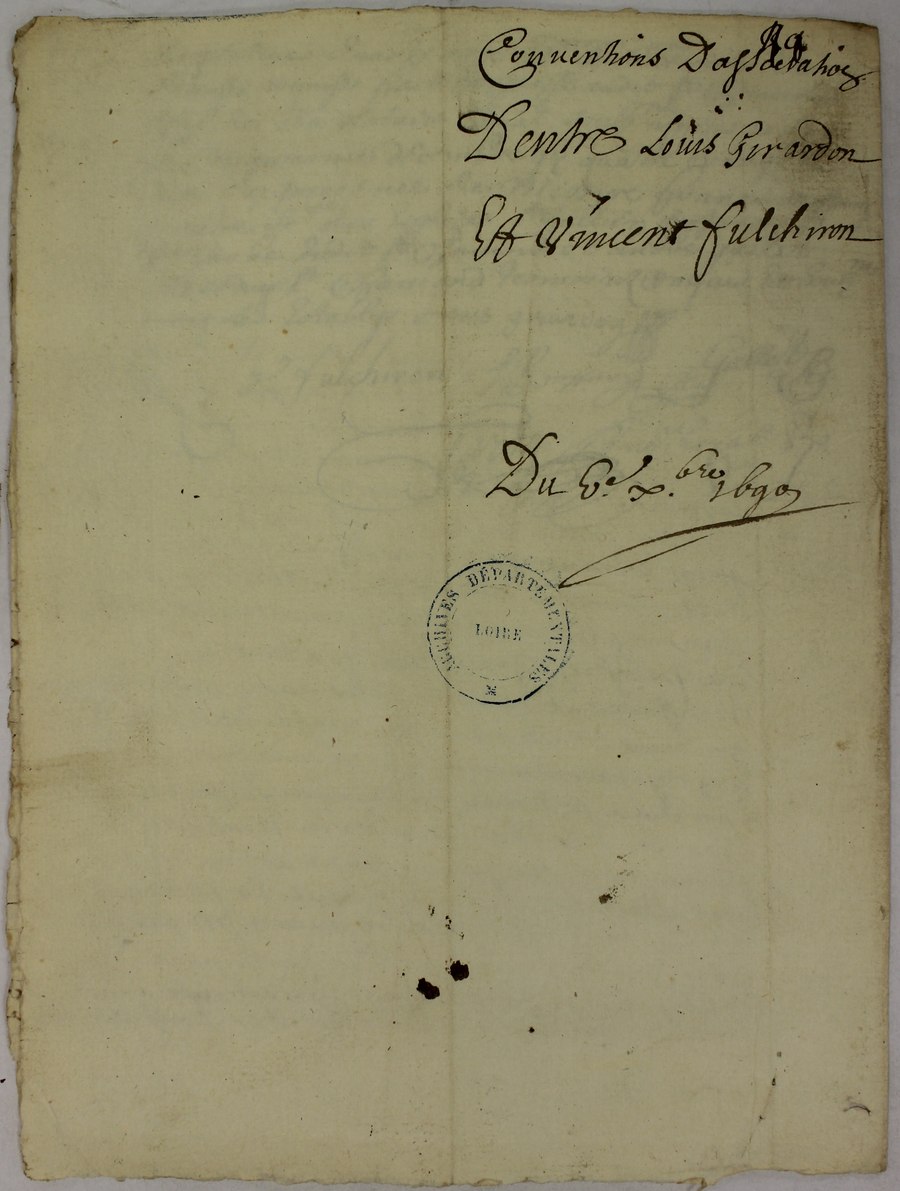 Conventions Dassociation
Dentre Louis Girardon
Et Vincent fulchiron
Du 6e xbre 1690
ARCHIVES DÉPARTEMENTALES
LOIRE